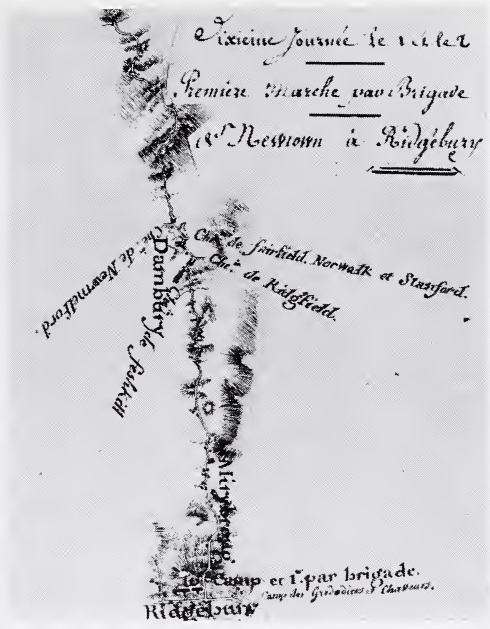 Sixieme Journée le 1 & le 2
Premiere Marche par Brigade
de Newtown à Ridgebury
Ch.n de fairfield. Norwalk et Stamford.
Ch.n de Ridgfield.
Ch.n de Newmilford.
Dambury
Ch.n de feshkill
Mirybroog
10.e Camp et 1.r par brigade.
Camp des Grenadiers et Chasseurs.
Ridgebury